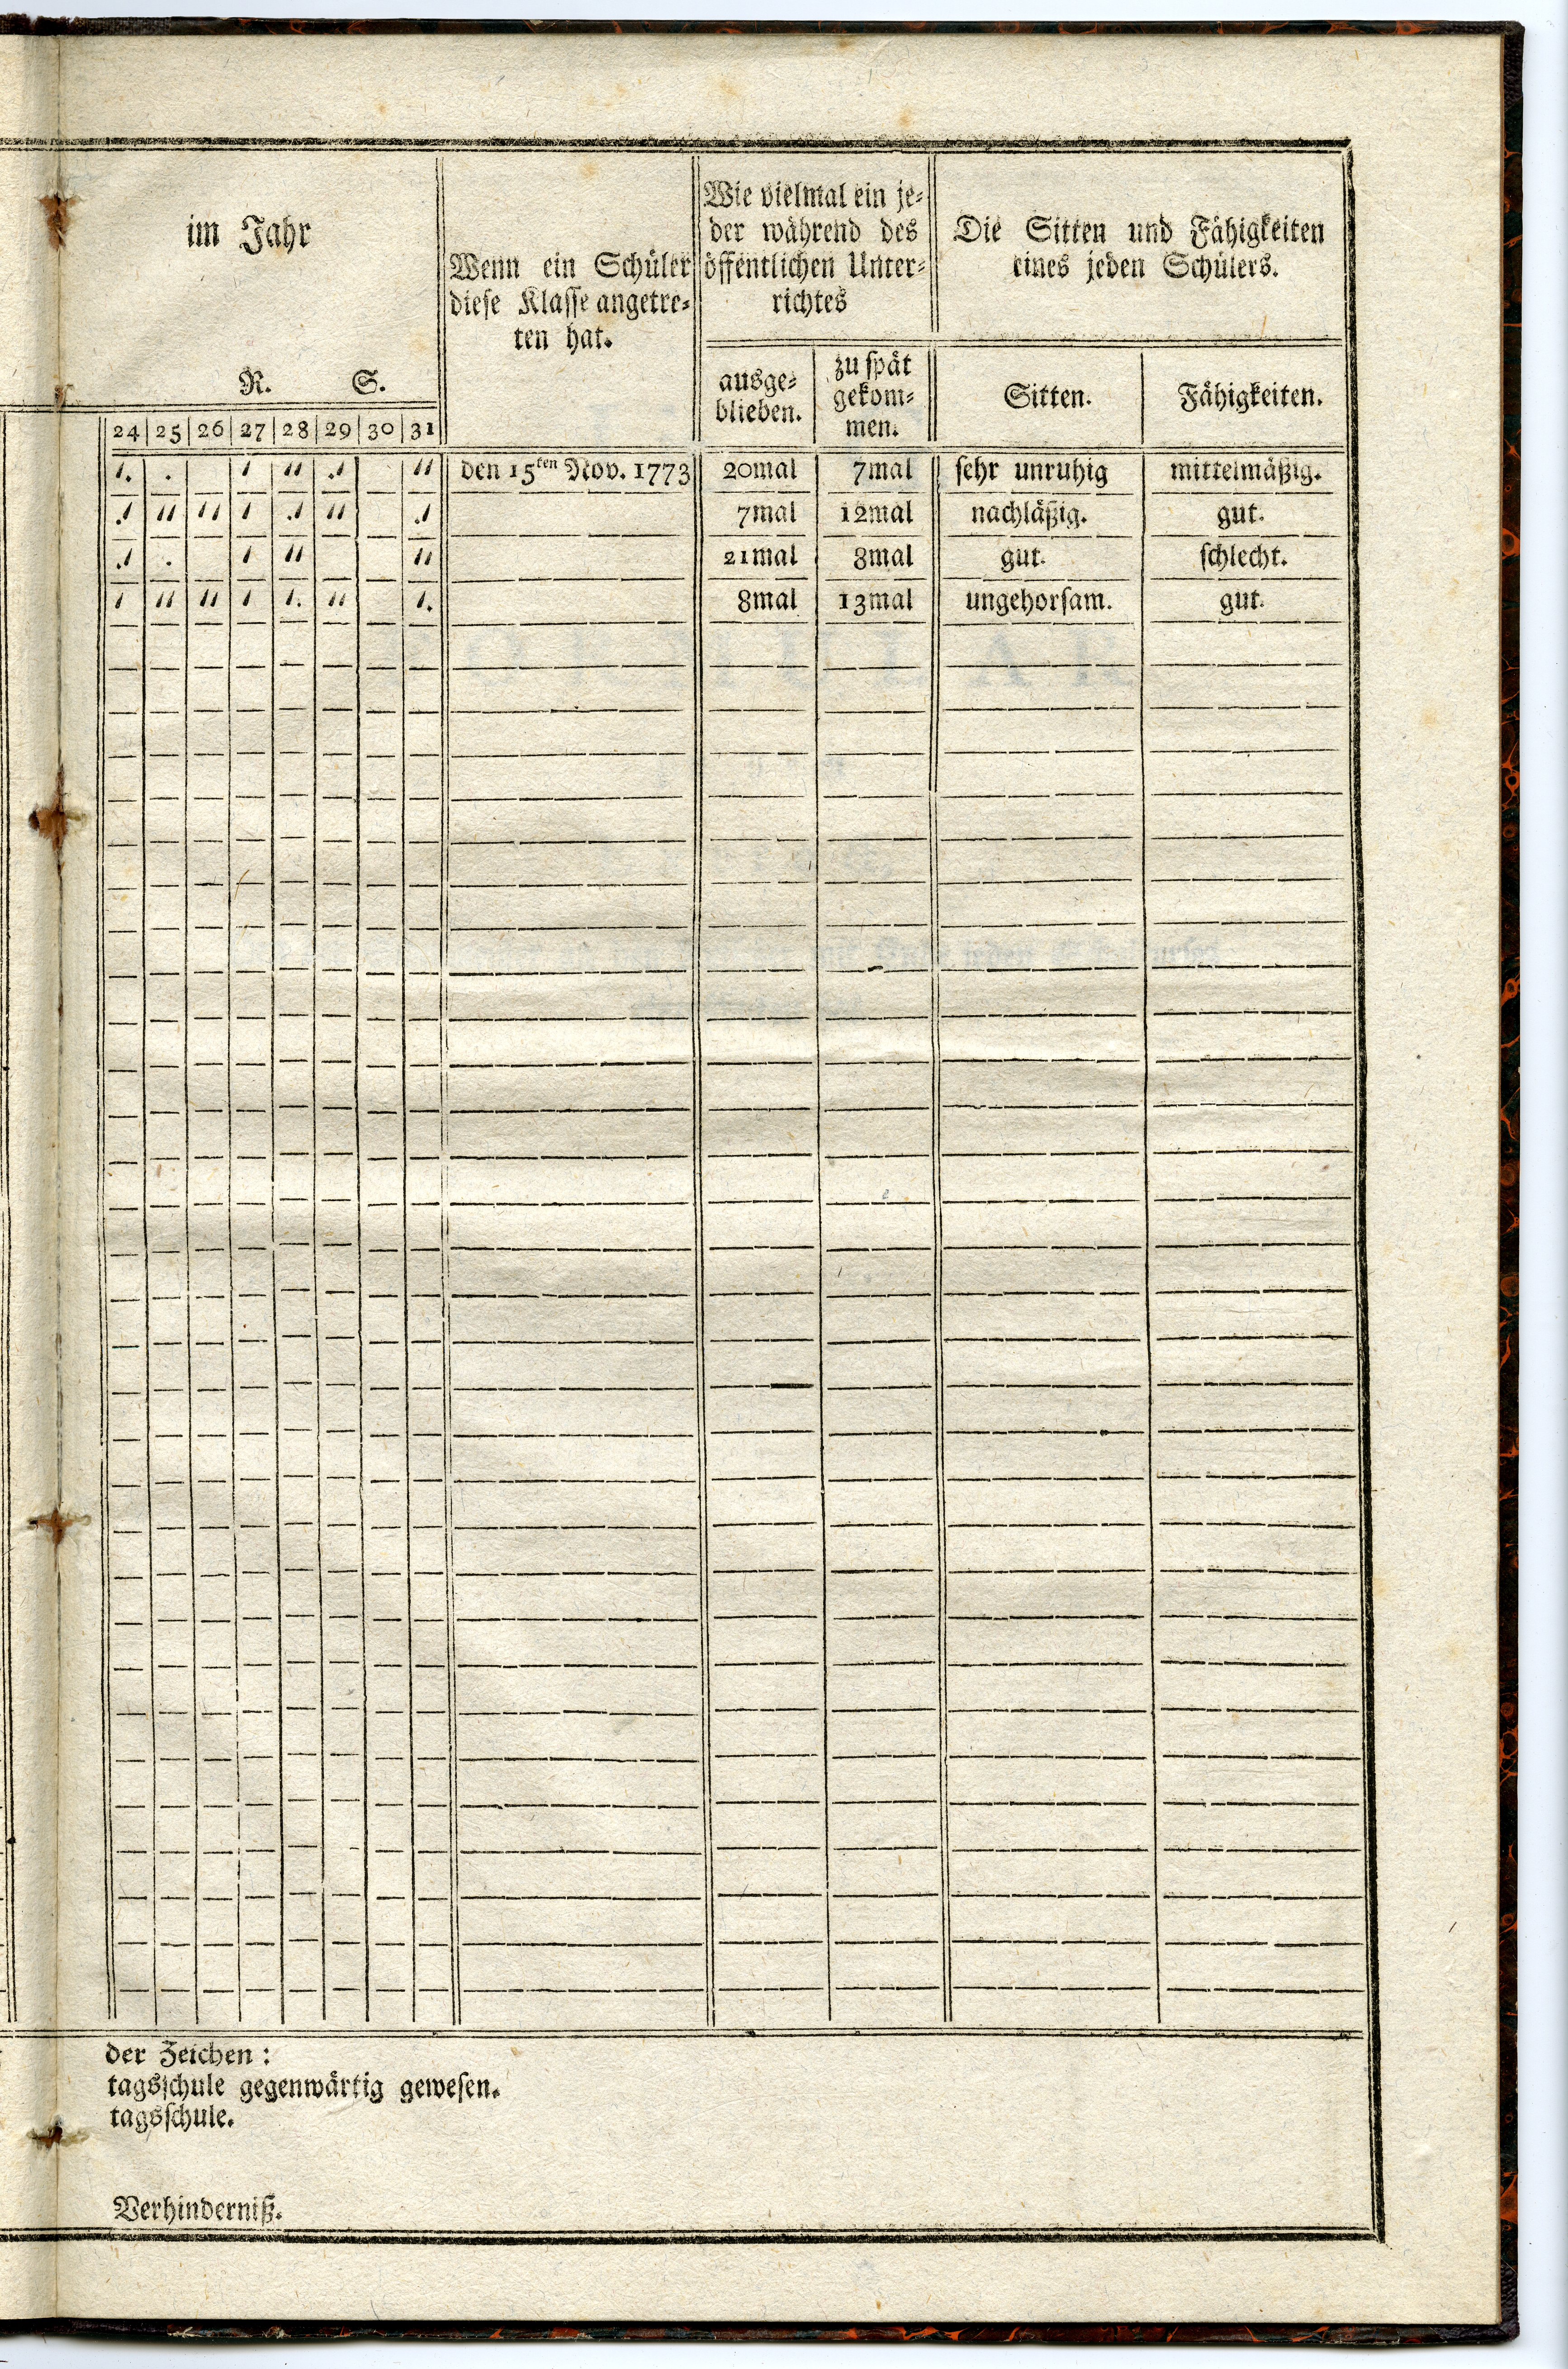 im Jahr
R. S.
Wenn ein Schüler
diese Klasse angetre⸗
ten hat.
Wie vielmal ein je⸗
der während des
öffentlichen Unter⸗
richtes
Die Sitten und Fähigkeiten
eines jeden Schülers.
ausge⸗
blieben.
zu spät
gekom⸗
men.
Sitten.
Fähigkeiten.
24 25 26 27 28 29 30 31
den 15ten Nov. 1773 20mal 7mal sehr unruhig mittelmäßig.
7mal 12mal nachläßig. gut.
21mal 8mal gut. schlecht.
8mal 13mal ungehorsam. gut.
der Zeichen:
tagsschule gegenwärtig gewesen.
tagsschule.
Verhinderniß.